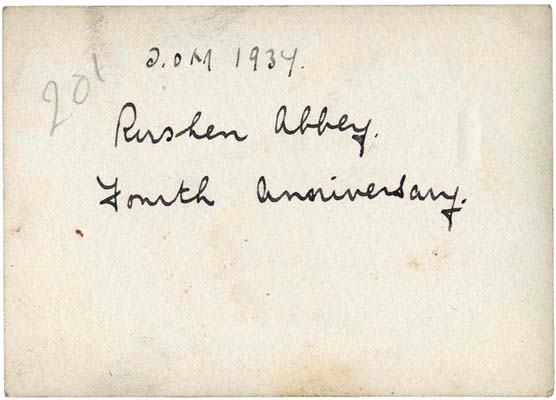 I.OM 1934.
201
Rushen Abbey.
Fourth Anniversary.